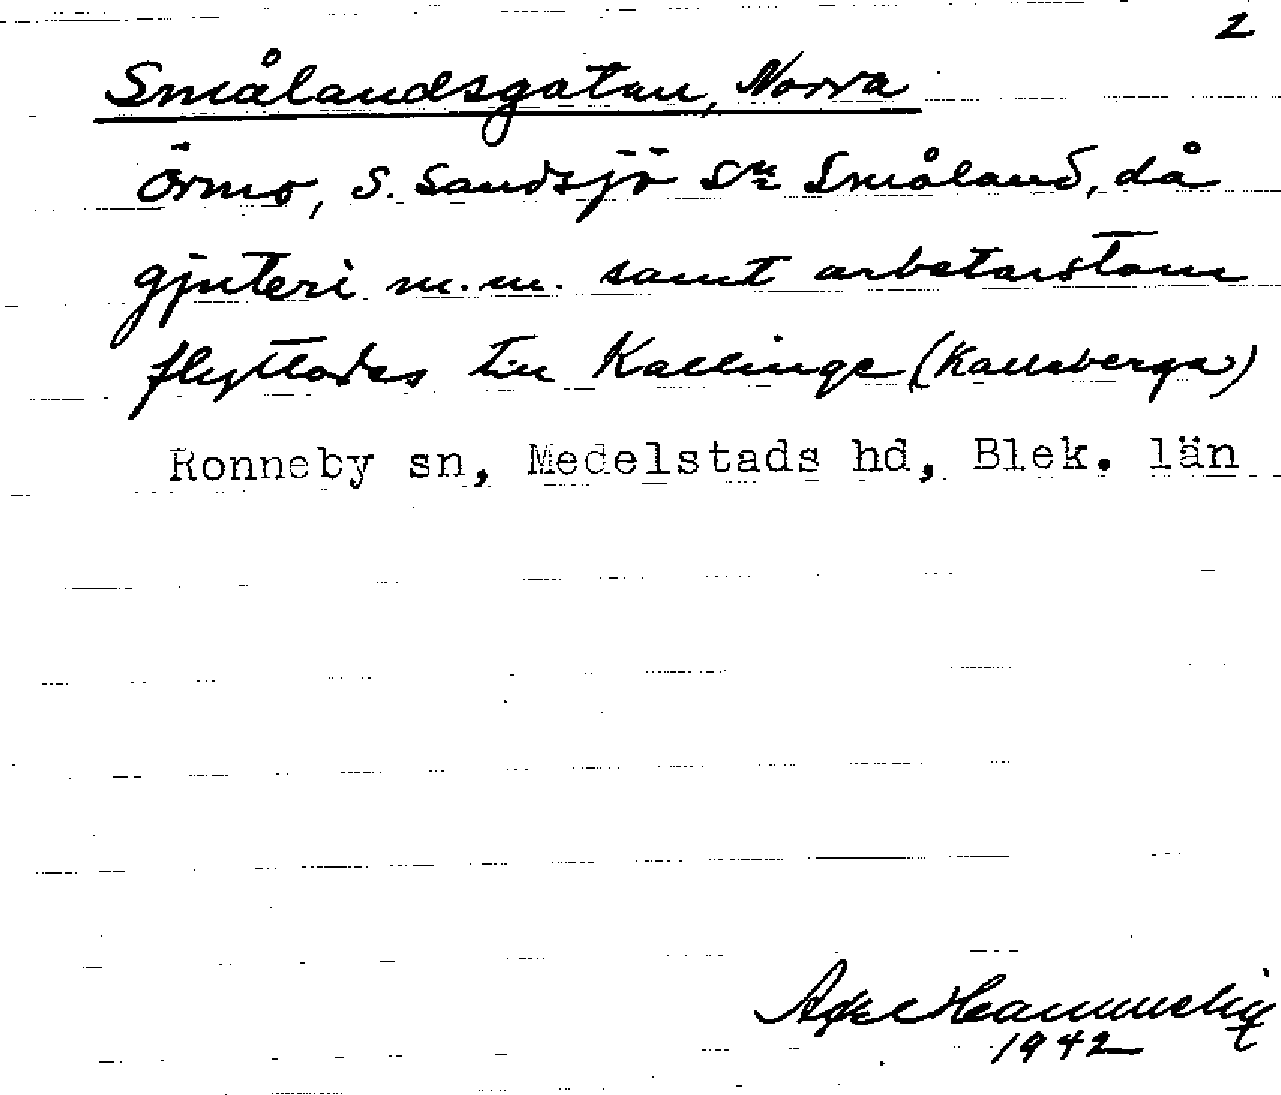 2
Smålandsgatan, Norra
Örmo, S. Sandsjö sn Småland, då
gjuteri m.m. samt arbetarstam
flyttades till Kallinge (Kallaberga)
Ronneby sn, Medelstads hd, Blek. län
Axel
1942